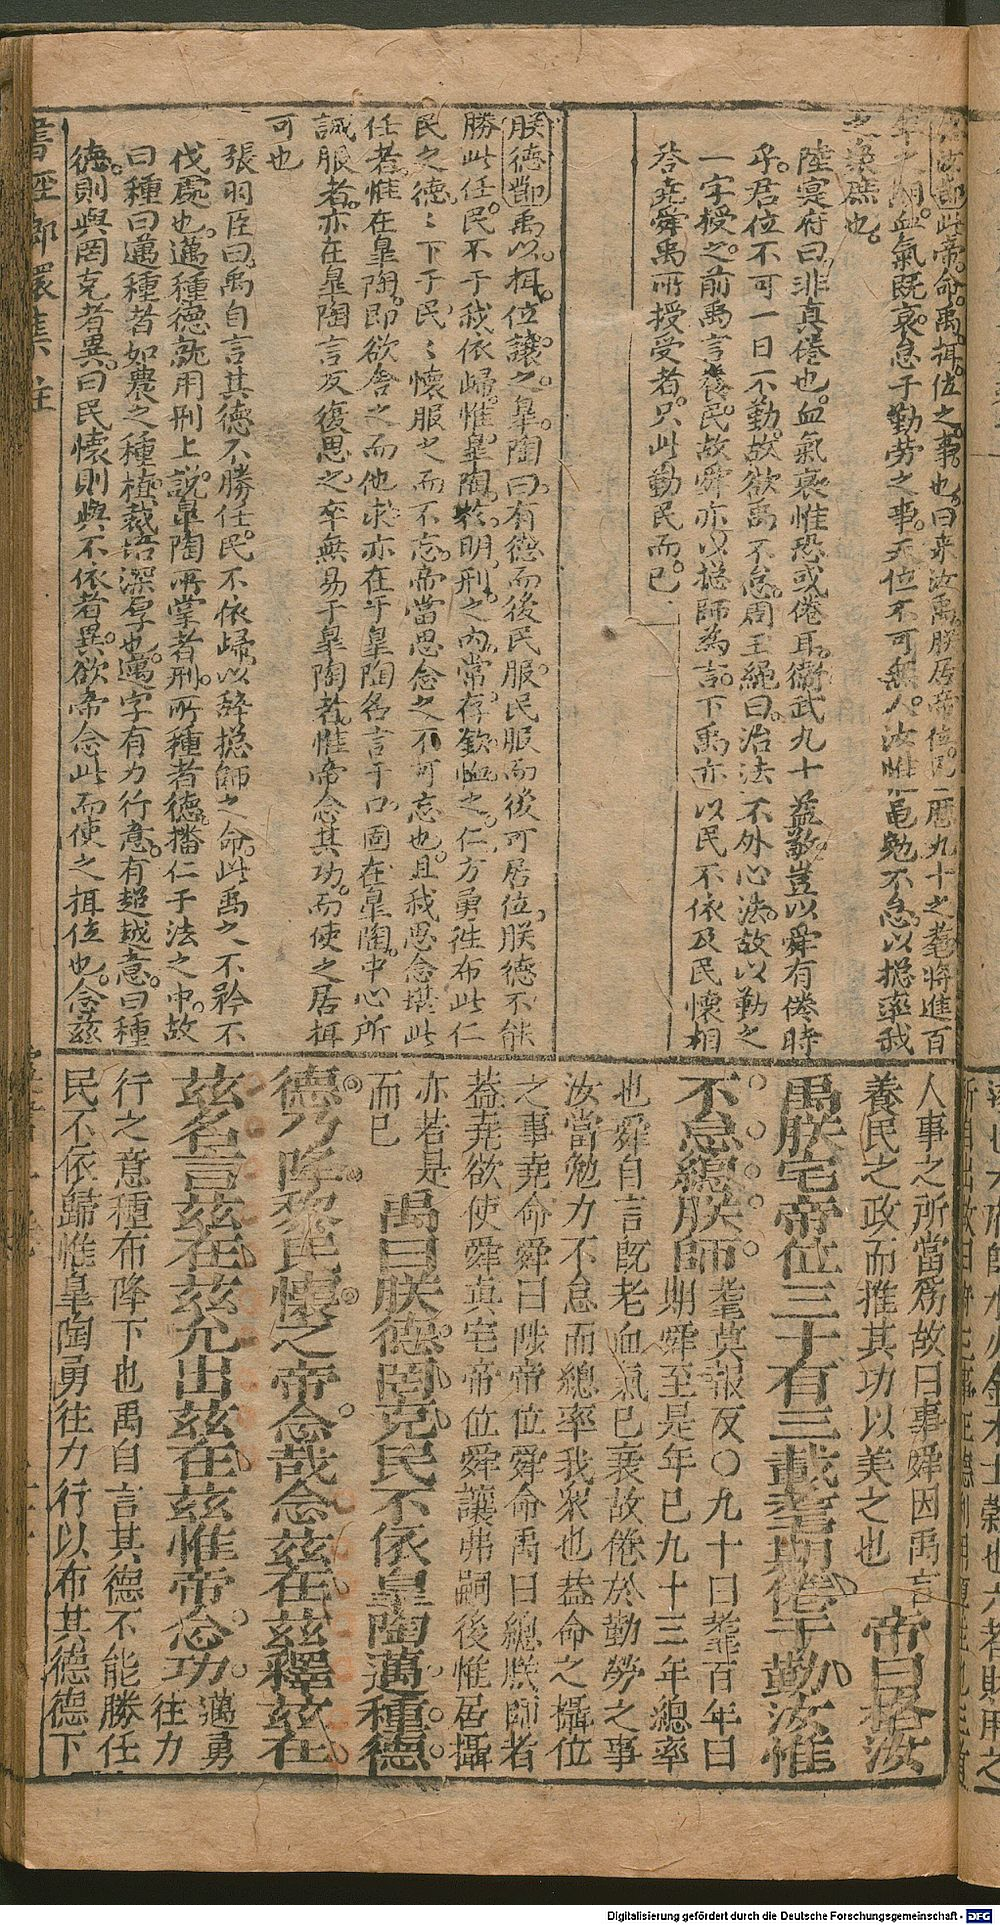 此帝命禹揖位之事也。曰來汝禹。朕居帝位。
年之期。血氣既衰。怠于勤勞之事。天位不可無人。汝惟黽勉不怠。以摠率我
之衆庶也。
陸宴府曰。非真倦也。血氣衰惟恐或倦耳。衛武九十益敬。豈以舜有倦時
乎。君位不可一日不勤。故欲禹不怠。周王繩曰。治法不外心法。故以勤之
一字授之。前禹言養民。故舜亦以摠師為言。下禹亦以民不依及民懷相
答。堯舜禹所授受者。只此勤民而已。
朕德節禹以揖位讓之。皐陶曰有德而後民服。民服而後可居位。朕德不能
勝此任。民不于我依歸。惟皐陶於明刑之內。常存欽恤之仁。方勇徃布此仁
民之德。〻下于民。〻懷服之而不忘。帝當思念之不可忘也。且我思念堪此
任者。惟在皐陶。即欲舍之而他求。亦在于皐陶。名言于口。固在皐陶。中心所
誠服者。亦在皐陶。言反復思之。卒無易于皐陶者。惟帝念其功。而使之居揖
可也
張羽臣曰。禹自言其德不勝任。民不依歸。以辞摠師之命。此禹之不矜不
伐處也。邁種德就用刑上說。皐陶所掌者刑。所種者德。播仁于法之中。故
曰種。曰邁種者。如農之種植。栽培深厚也。邁字有力行意。有超越意。曰種
德。則與罔克者異。曰民懷。則與不依者異。欲帝念此而使之揖位也。念茲
人事之所當爲故曰事舜因禹言
養民之政而推其功以美之也　帝曰格汝
禹朕宅帝位三十有三載耄期倦于勤汝惟
不怠總朕師　耄莫報反○九十曰耄百年曰
期舜至是年已九十三年總率
也舜自言既老血氣已衰故倦於勤勞之事
汝當勉力不怠而總率我衆也葢命之攝位
之事堯命舜曰陟帝位舜命禹曰總朕師者
葢堯欲使舜真宅帝位舜讓弗嗣後惟居攝
亦若是
而已　禹曰朕德罔克民不依皐陶邁種德
德乃降黎民懷之帝念哉念茲在茲釋茲在
茲名言茲在茲允出茲在茲惟帝念功　邁勇
往力
行之意種布降下也禹自言其德不能勝任
民不依歸惟皐陶勇往力行以布其德德下
Digitalisierung gefördert durch die Deutsche Forschungsgemeinschaft - DFG